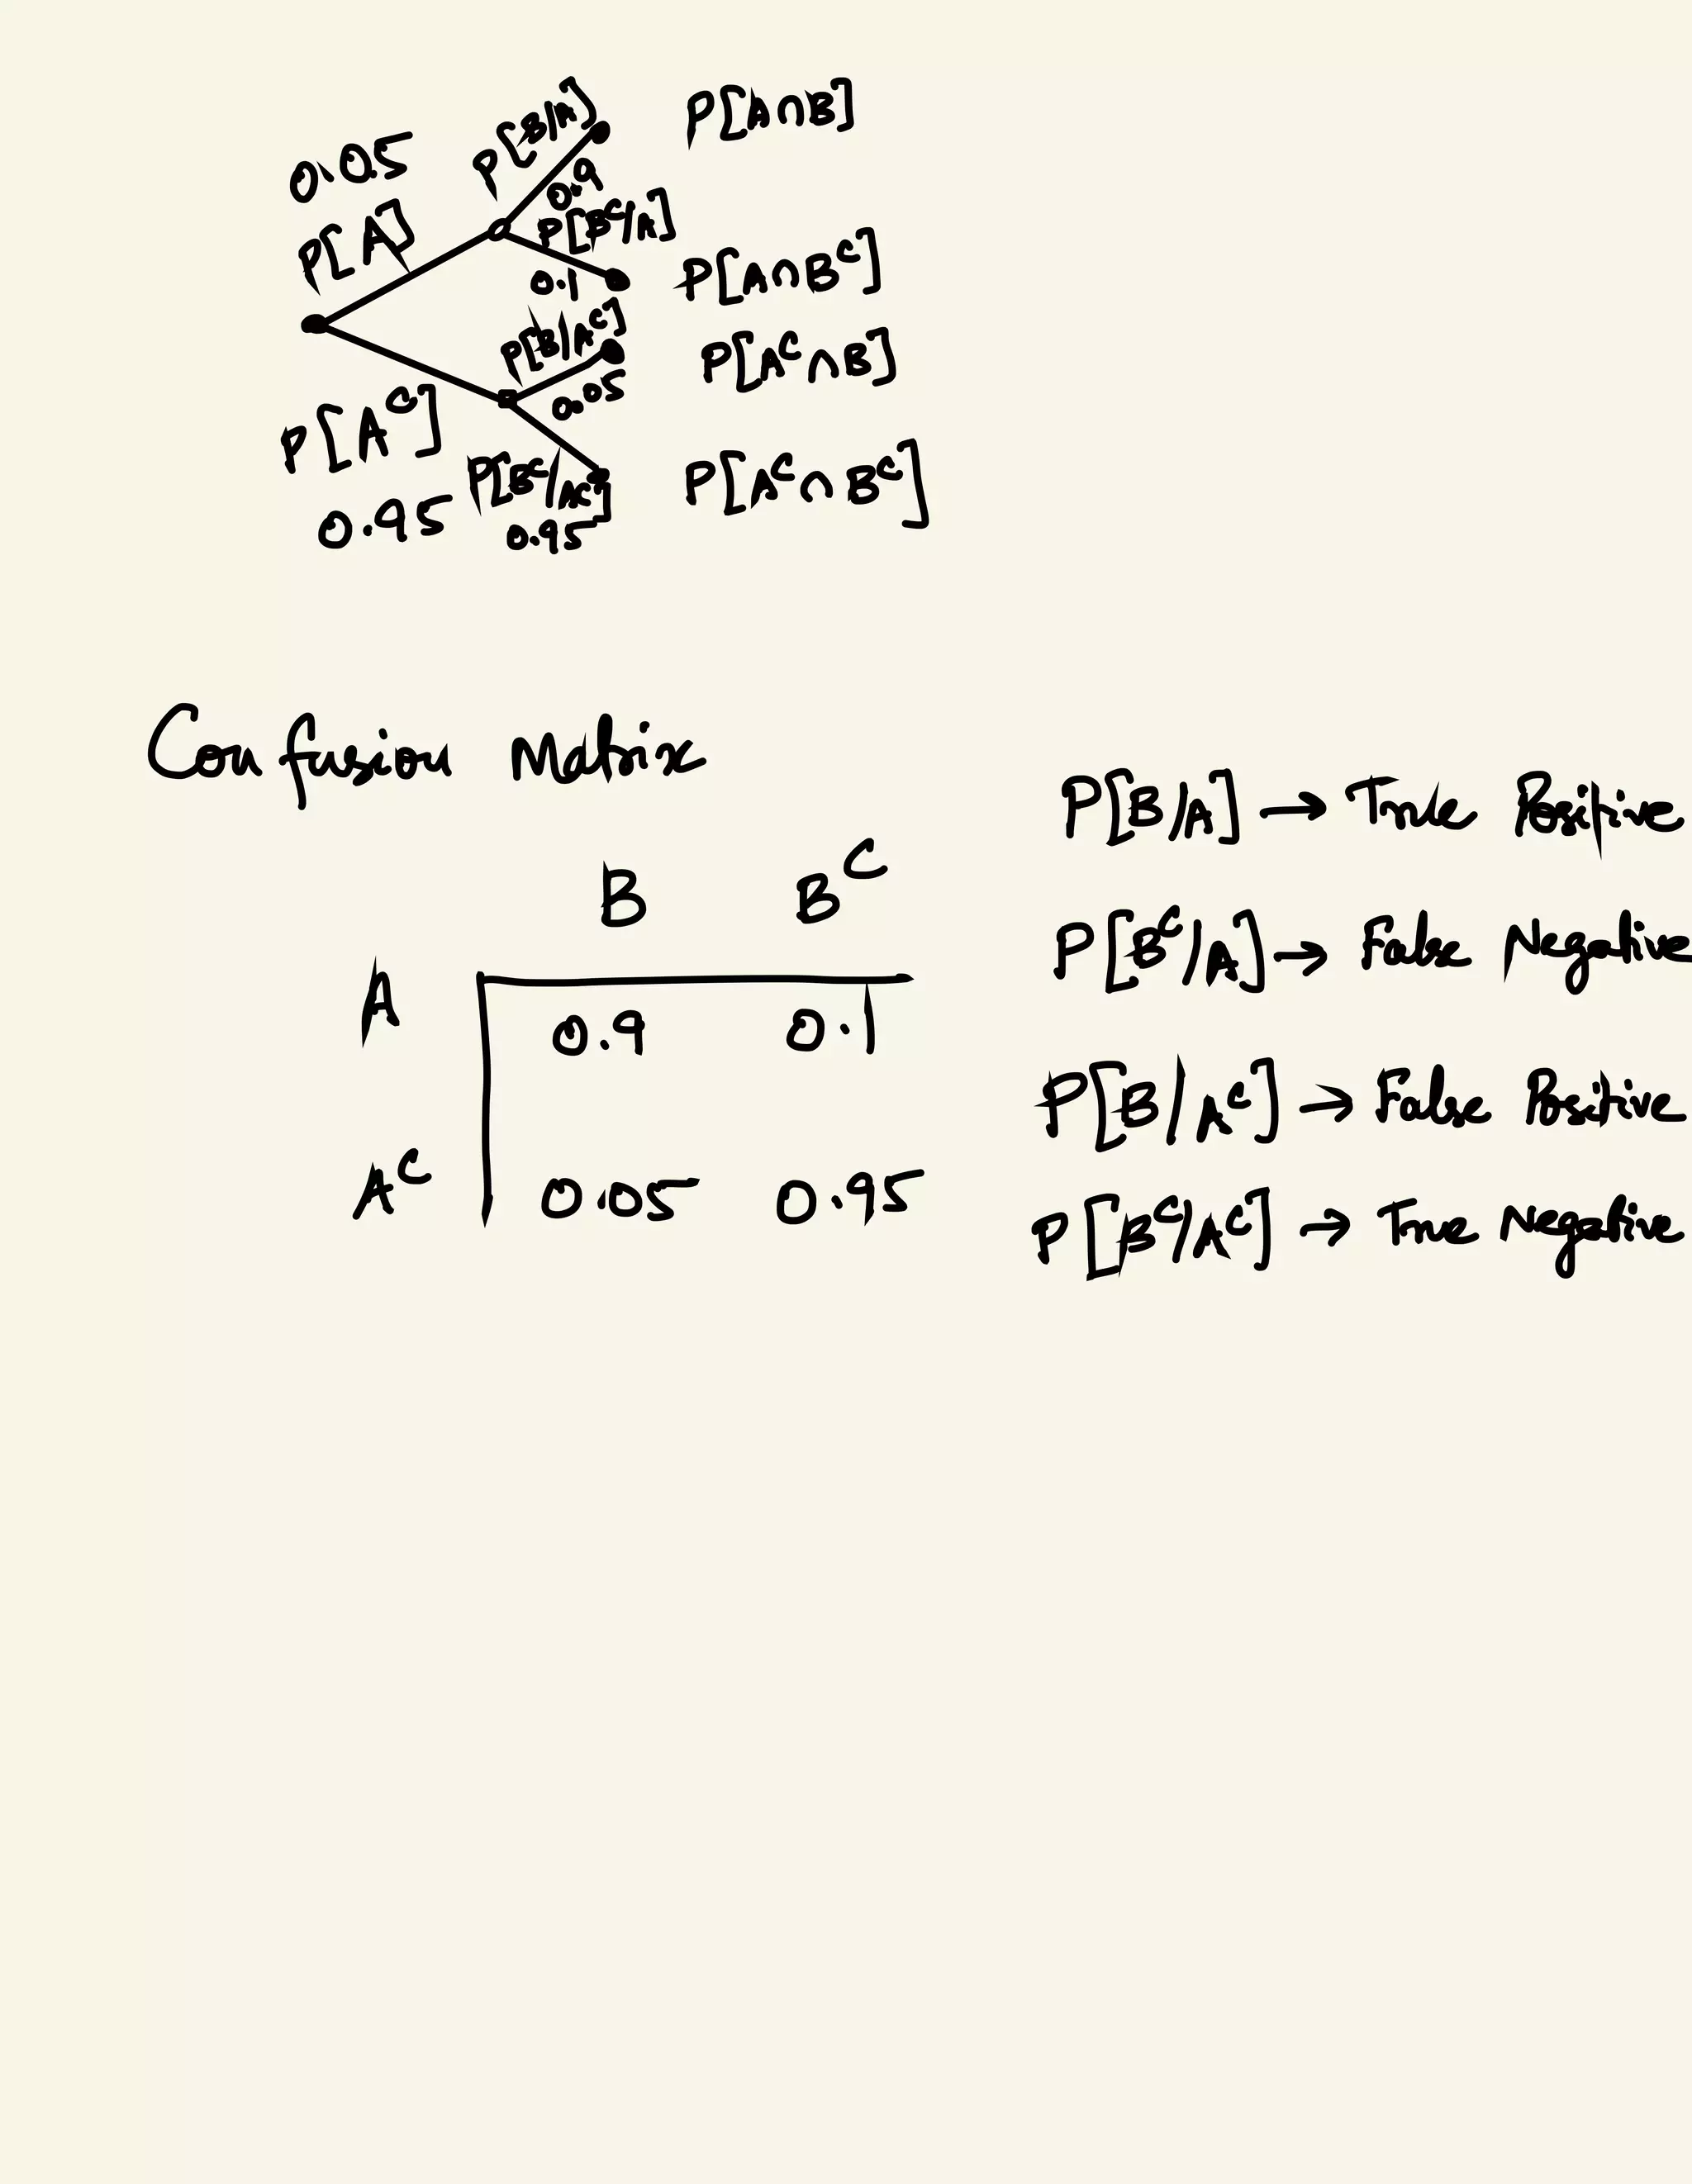 0.05
P[A]
P[B/A]
0.9
P[A∩B]
P[Bᶜ/A]
0.1
P[A∩Bᶜ]
P[B/Aᶜ]
0.05
P[Aᶜ∩B]
P[Aᶜ]
0.95
P[Bᶜ/Aᶜ]
0.95
P[Aᶜ∩Bᶜ]
Confusion Matrix
B Bᶜ
A 0.9 0.1
Aᶜ 0.05 0.95
P[B/A] → True Positive
P[Bᶜ/A] → False Negative
P[B/Aᶜ] → False Positive
P[Bᶜ/Aᶜ] → True Negative